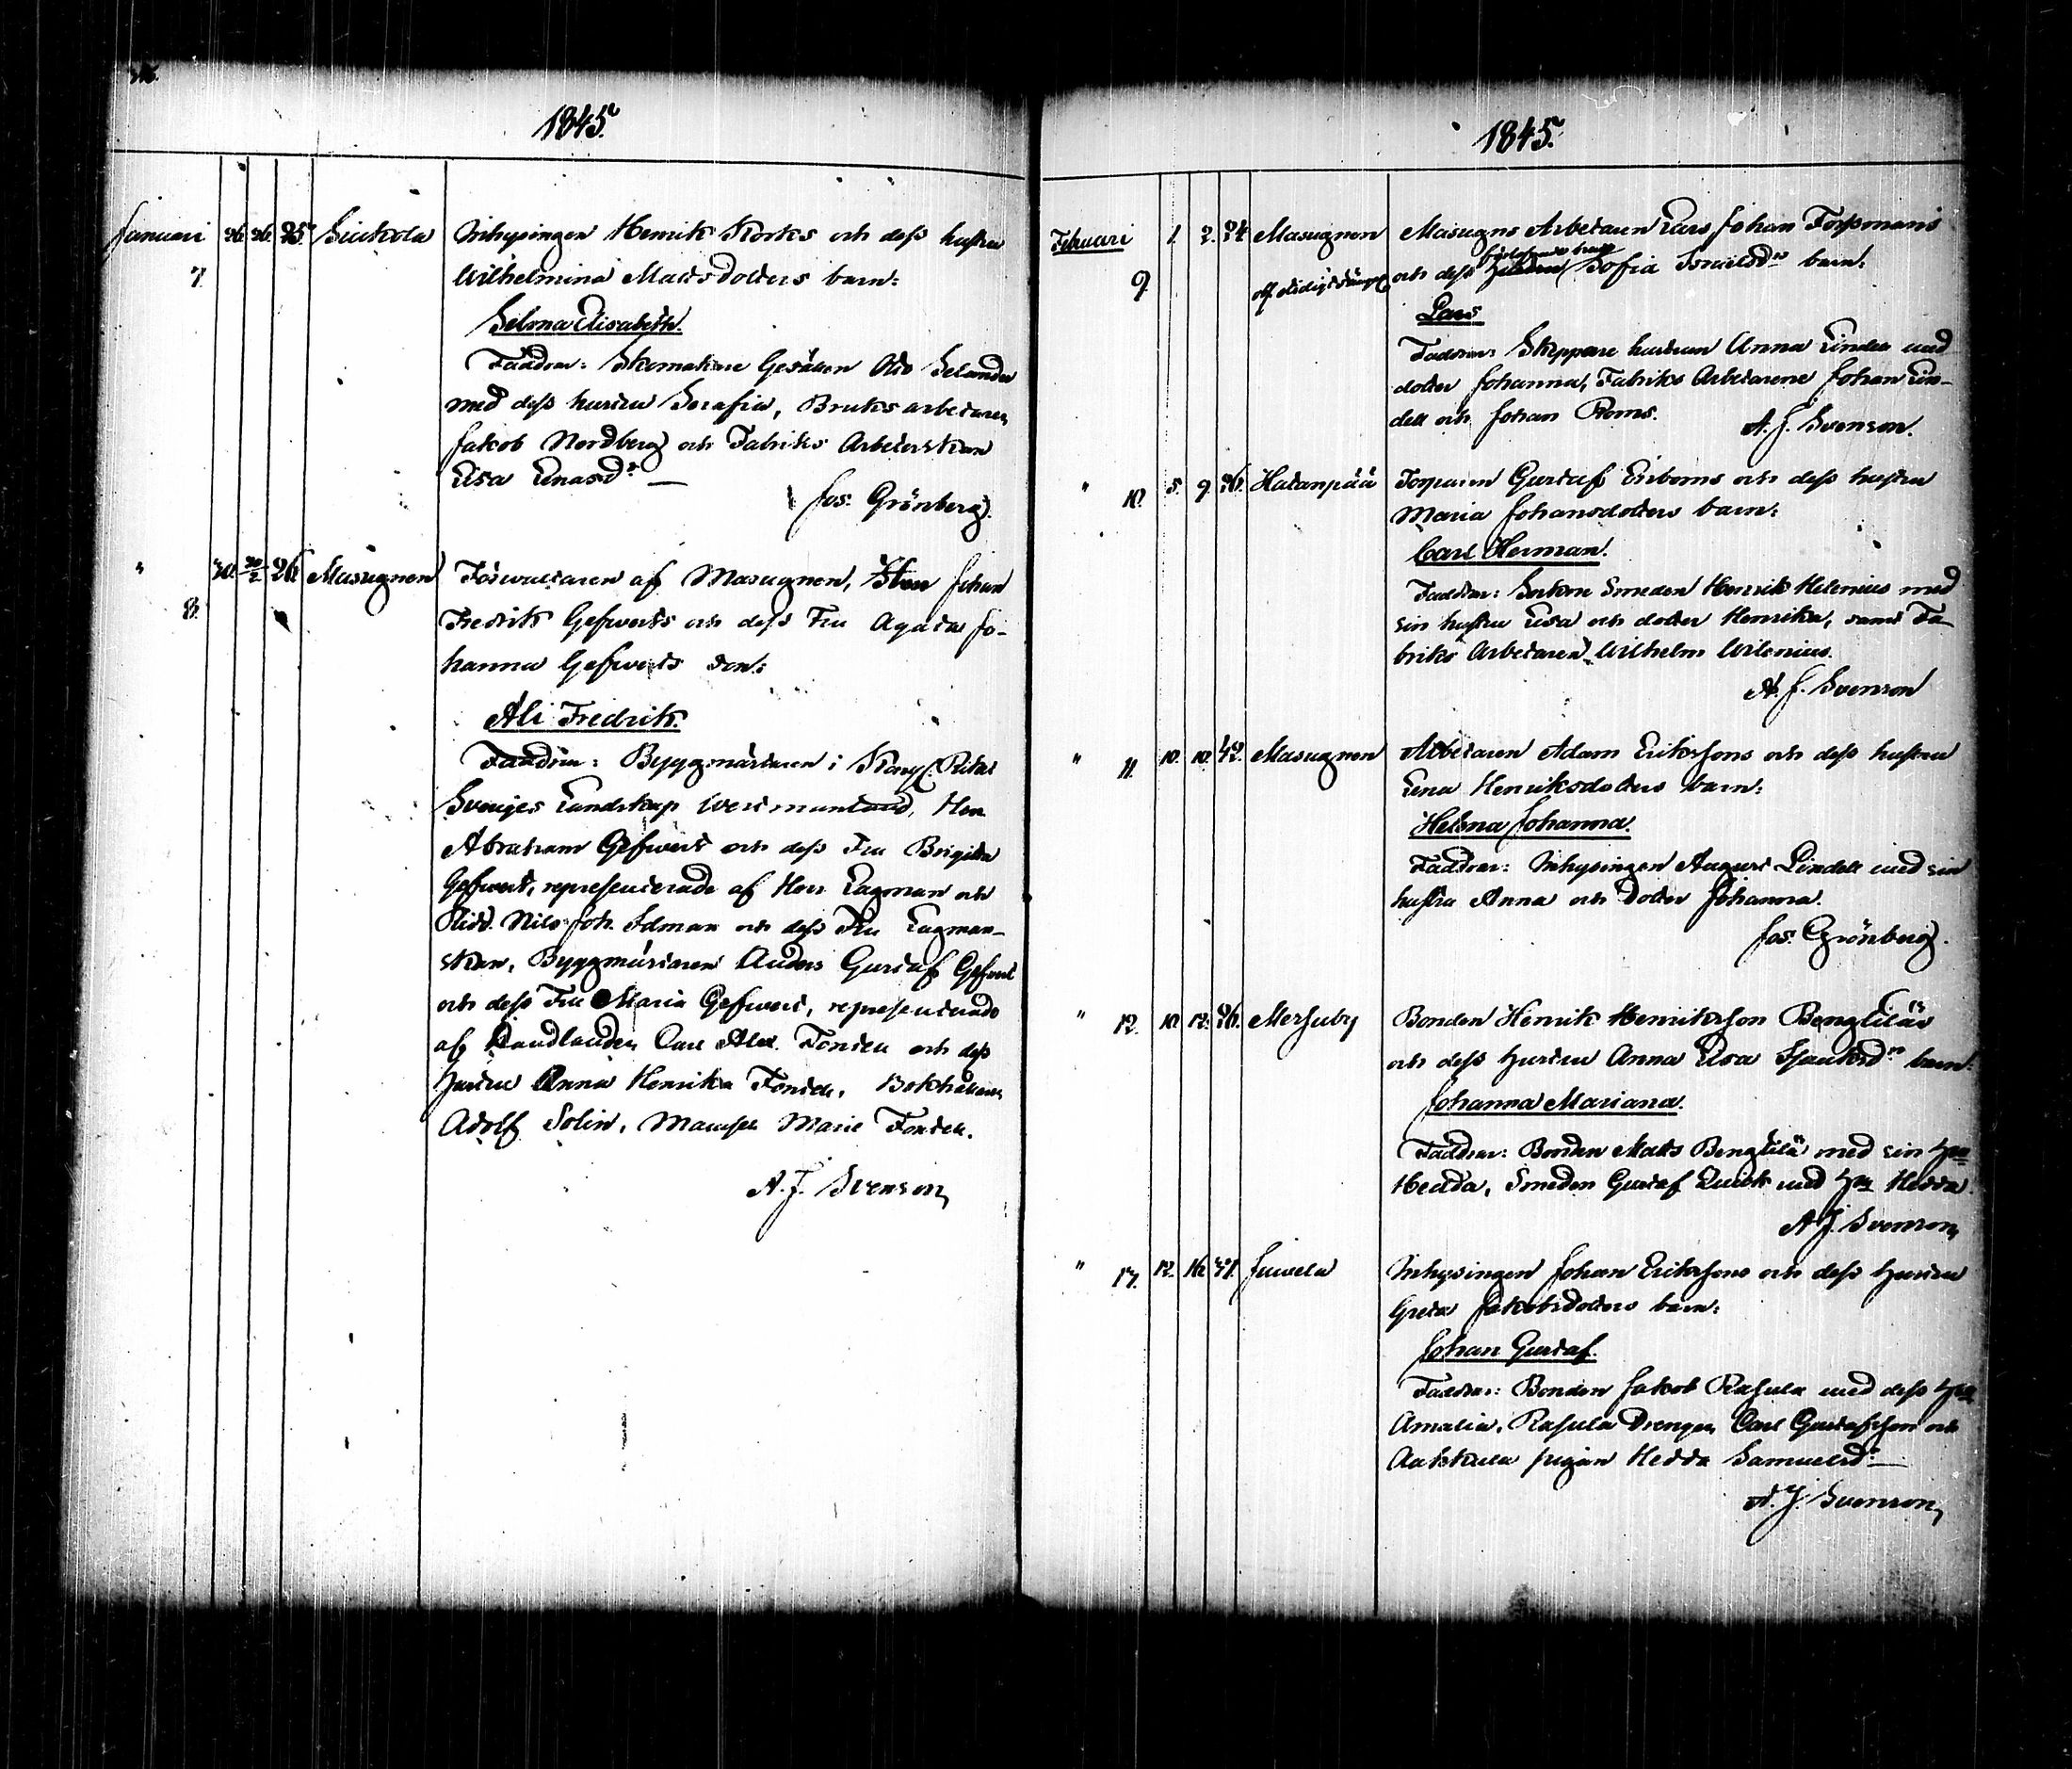 1845.
Januari 26 26 25 Siukola Inhysingen Henrik Storks och dess hustru
7. Wilhelmina Mattsdotters barn:
Selma Elisabeth.
Faddrar: Skomakare Gesällen Otto Selander
med dess hustru Serafia, Bruksarbetaren
Jakob Nordberg och Fabriks Arbeterskan
Lisa Enasdr —
Jos. Grönberg.
" 30. 20/2 26 Masugnen Förvaltaren af Masugnen, Herr Johan
8. Fredrik Gefwerts och dess Fru Agata Jo-
hanna Gefwerts son:
Ali Fredrik.
Faddrar: Byggmästaren i Kongl. Riket
Sveriges Landskap Westmanland, Herr
Abraham Gefwert och dess Fru Brigitta
Gefwert, representerade af Herr Lagman och
Ridd. Nils Joh. Idman och dess Fru Lagman-
skan, Byggmästaren Anders Gustaf Gefwert
och dess Fru Maria Gefwert, representerade
af Handlanden Carl Alex. Fonsell och dess
hustru Anna Henrika Fonsell, Bokhållaren
Adolf Solin, Mamsell Marie Fonsell.
A. J. Svenson
1845.
Februari 1. 2. 24 Masugnen Masugns Arbetaren Lars Johan Forssmans
9. och dess hustru Sofia Israelsdrs barn:
Lars
Faddrar: Skeppare hustrun Anna Lindell med
dotter Johanna, Fabriks Arbetarene Johan Lin-
dell och Johan Roms.
A. J. Svenson.
" 10. 5. 9. 26. Hatanpää Torparen Gustaf Enboms och dess hustru
Maria Johansdotters barn:
Carl Herman.
Faddrar: Socken Smeden Henrik Helenius med
sin hustru Lisa och dotter Henrika, samt Fa-
briks Arbetaren Wilhelm Wilenius.
A. J. Svenson
" 11. 10. 10. 42. Masugnen Arbetaren Adam Erikssons och dess hustru
Lena Henriksdotters barn:
Helena Johanna.
Faddrar: Inhysingen August Lindell med sin
hustru Anna och dotter Johanna.
Jos. Grönberg.
" 12. 10. 12. 26. Mersuby Bonden Henrik Henriksson Bengtiläs
och dess hustru Anna Lisa Isaksdrs barn:
Johanna Mariana.
Faddrar: Bonden Matts Bengtilä med sin hru
Hedda, Smeden Gustaf Quick med hru Hedda.
A. J. Svenson
" 13. 12. 16. 31. Juvela Inhysingen Johan Erikssons och dess hustru
Greta Jakobsdotters barn:
Johan Gustaf.
Faddrar: Bonden Jakob Rasula med dess hru
Amalia, Rasula Drengen Carl Gustafsson och
Aakkula pigan Hedda Samuelsdr —
A. J. Svenson